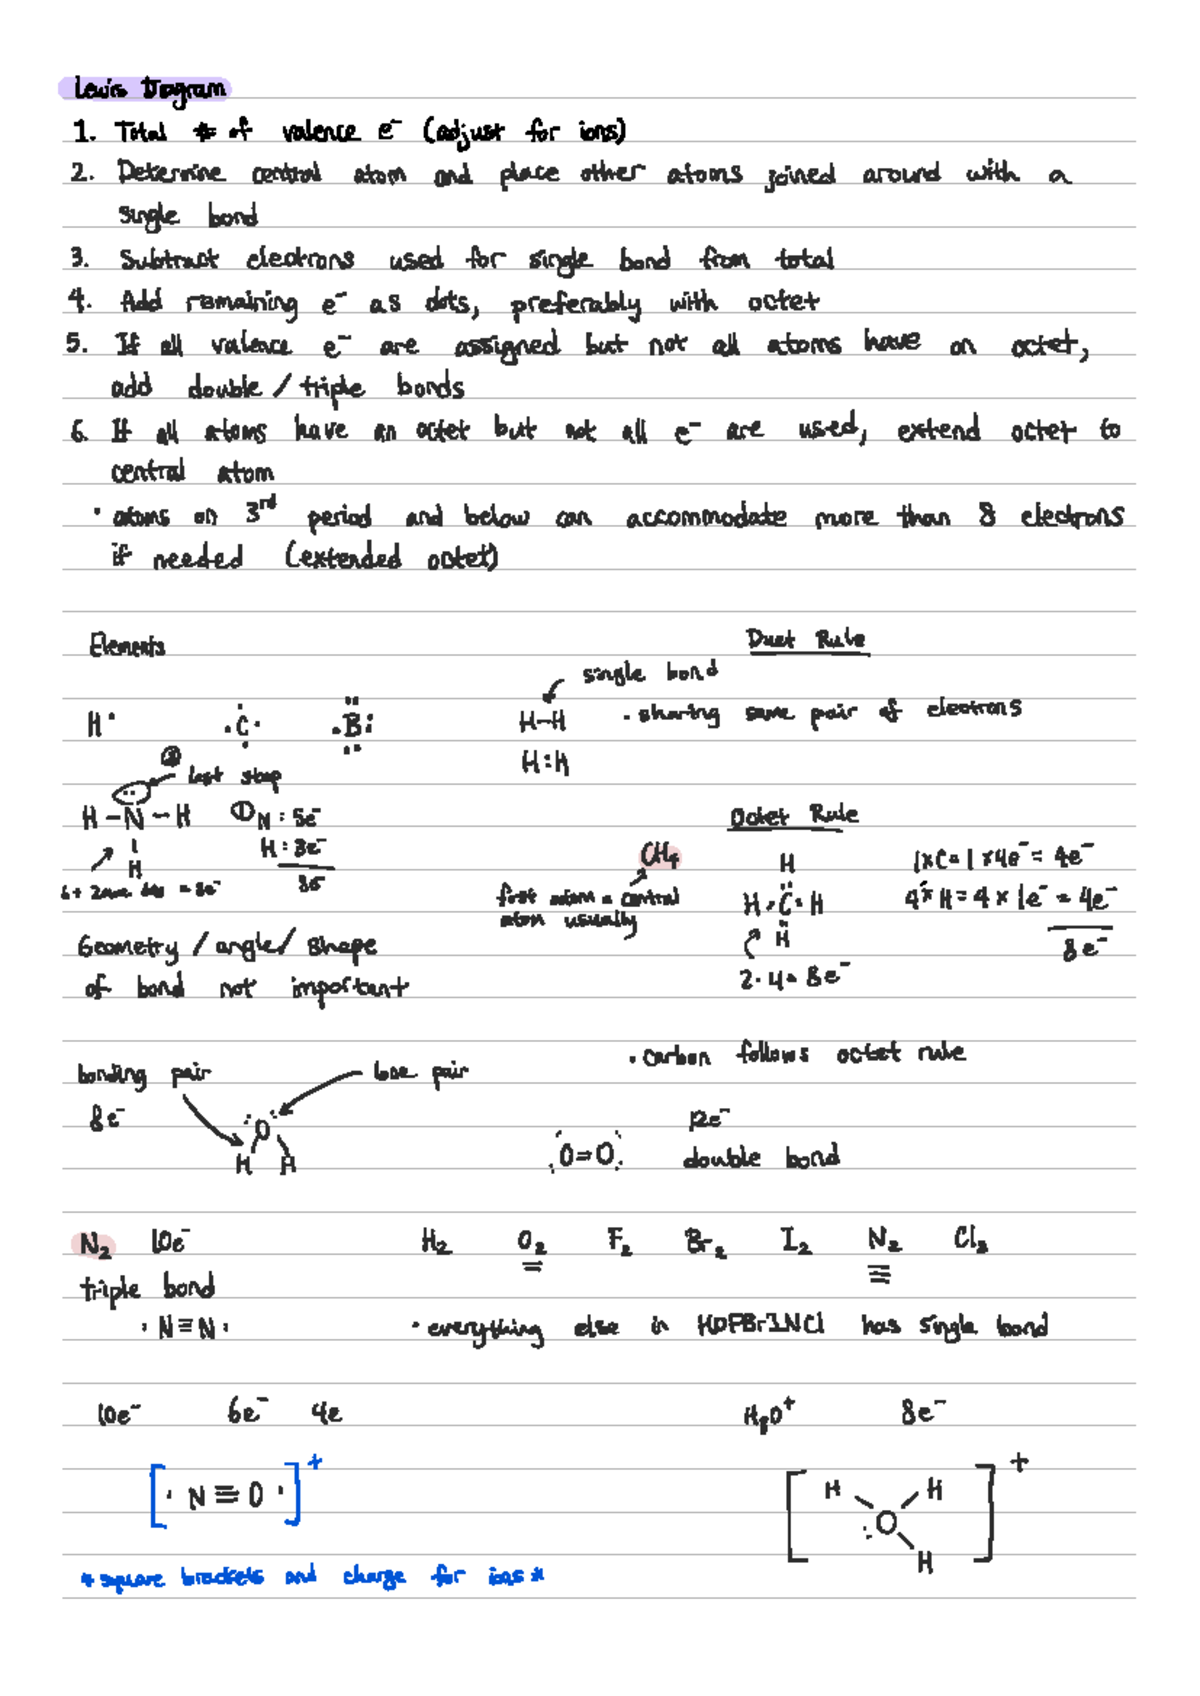 Lewis Diagram
1. Total # of valence e⁻ (adjust for ions)
2. Determine central atom and place other atoms joined around with a
single bond
3. Subtract electrons used for single bond from total
4. Add remaining e⁻ as dots, preferably with octet
5. If all valence e⁻ are assigned but not all atoms have an octet,
add double / triple bonds
6. If all atoms have an octet but not all e⁻ are used, extend octet to
central atom
• atoms on 3rd period and below can accommodate more than 8 electrons
if needed (extended octet)
Elements
Duet Rule
single bond
H· ·C· ·B:
H-H • sharing same pair of electrons
H:H
② last step
H-N-H ① N: 5e⁻
H H: 3e⁻
8e⁻
Octet Rule
CH₄
first atom = central
atom usually
H
H·C·H
H
2·4=8e⁻
1×C=1×4e⁻=4e⁻
4×H=4×1e⁻=4e⁻
8e⁻
Geometry / angle / shape
of bond not important
• carbon follows octet rule
bonding pair lone pair
8e⁻
O
H H
:O=O: 12e⁻
double bond
N₂ 10e⁻
triple bond
·N≡N·
H₂ O₂ F₂ Br₂ I₂ N₂ Cl₂
= ≡
• everything else in HOFBrINCl has single bond
10e⁻ 6e⁻ 4e
[·N≡O·]⁺
* square brackets and charge for ions *
H₃O⁺ 8e⁻
[H H
:O
H]⁺